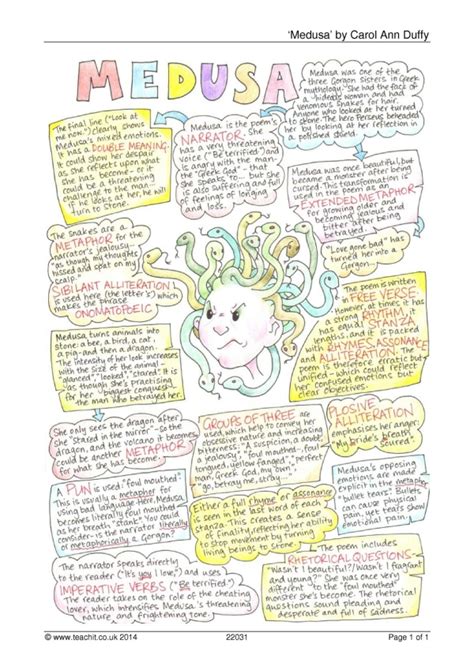 'Medusa' by Carol Ann Duffy
MEDUSA
Medusa was one of the
three Gorgon sisters in Greek
mythology. She had the face of
a hideous woman and had
venomous snakes for hair.
Anyone who looked at her turned
to stone. The hero Perseus beheaded
her by looking at her reflection in
a polished shield.
The final line ("Look at
me now") clearly shows
Medusa's mixed emotions.
It has a DOUBLE MEANING.
It could show her despair
as she reflects upon what
she has become - or it
could be a threatening
challenge to the man. If
he looks at her, he will
turn to stone.
Medusa is the poem's
NARRATOR. She
has a very threatening
voice ("Be terrified") and
is angry with the man -
the "Greek God" - that
she speaks to - but she
is also suffering and full
of feelings of longing
and loss.
Medusa was once beautiful, but
became a monster after being
cursed. This transformation is
used in the poem as an
EXTENDED METAPHOR
for growing older and
becoming jealous and
bitter after being
betrayed.
The snakes are a
METAPHOR for the
narrator's jealousy -
"as though my thoughts
hissed and spat on my
scalp."
SIBILANT ALLITERATION
is used here (the letter 's') which
makes the phrase
ONOMATOPOEIC
"Love gone bad" has
turned her into a
Gorgon
The poem is written
in FREE VERSE.
However, at times, it has
a strong RHYTHM,
has equal STANZA
lengths, and it is packed
with RHYMES, ASSONANCE
and ALLITERATION. The
poem is therefore erratic but
unified - which could reflect
her confused emotions
Medusa turns animals into
stone: a bee, a bird, a cat,
a pig - and then a dragon.
The intensity of her look increases
with the size of the animal:
"glanced", "looked", "stared". It is
as though she's practising
for her biggest conquest -
the man who betrayed her.
She only sees the dragon after
she "stared in the mirror" - so the
dragon, and the volcano it becomes,
could be another METAPHOR
for what she has become.
GROUPS OF THREE are
used, which help to convey her
obsessive nature and increasing
bitterness: "A suspicion, a doubt,
a jealousy", "foul mouthed, foul
tongued, yellow fanged", "perfect
man, Greek God, my own",
"go, betray me, stray"
PLOSIVE
ALLITERATION
emphasises her anger:
"My bride's breath
soured"
A PUN is used: "foul mouthed".
This is usually a metaphor for
using bad language. Here, Medusa
becomes literally foul mouthed
as her breath "stank". You could
consider - is the narrator literally
or metaphorically a Gorgon?
Either a full rhyme or assonance
is seen in the last word of each
stanza. This creates a sense
of finality, reflecting her ability
to stop movement by turning
living beings to stone.
Medusa's opposing
emotions are made
explicit in the metaphor
"bullet tears". Bullets
can cause physical
pain, yet tears show
emotional pain.
The narrator speaks directly
to the reader ("It's you I love") and uses
IMPERATIVE VERBS ("Be terrified").
The reader takes on the role of the cheating
lover, which intensifies Medusa's threatening
nature and frightening reputation.
The poem includes
RHETORICAL QUESTIONS -
"Wasn't I beautiful? / Wasn't I fragrant
and young?" She was once very
different to the "foul mouthed"
monster she's become. The rhetorical
questions sound pleading and
desperate and full of sadness.
© www.teachit.co.uk 2014
22031
Page 1 of 1